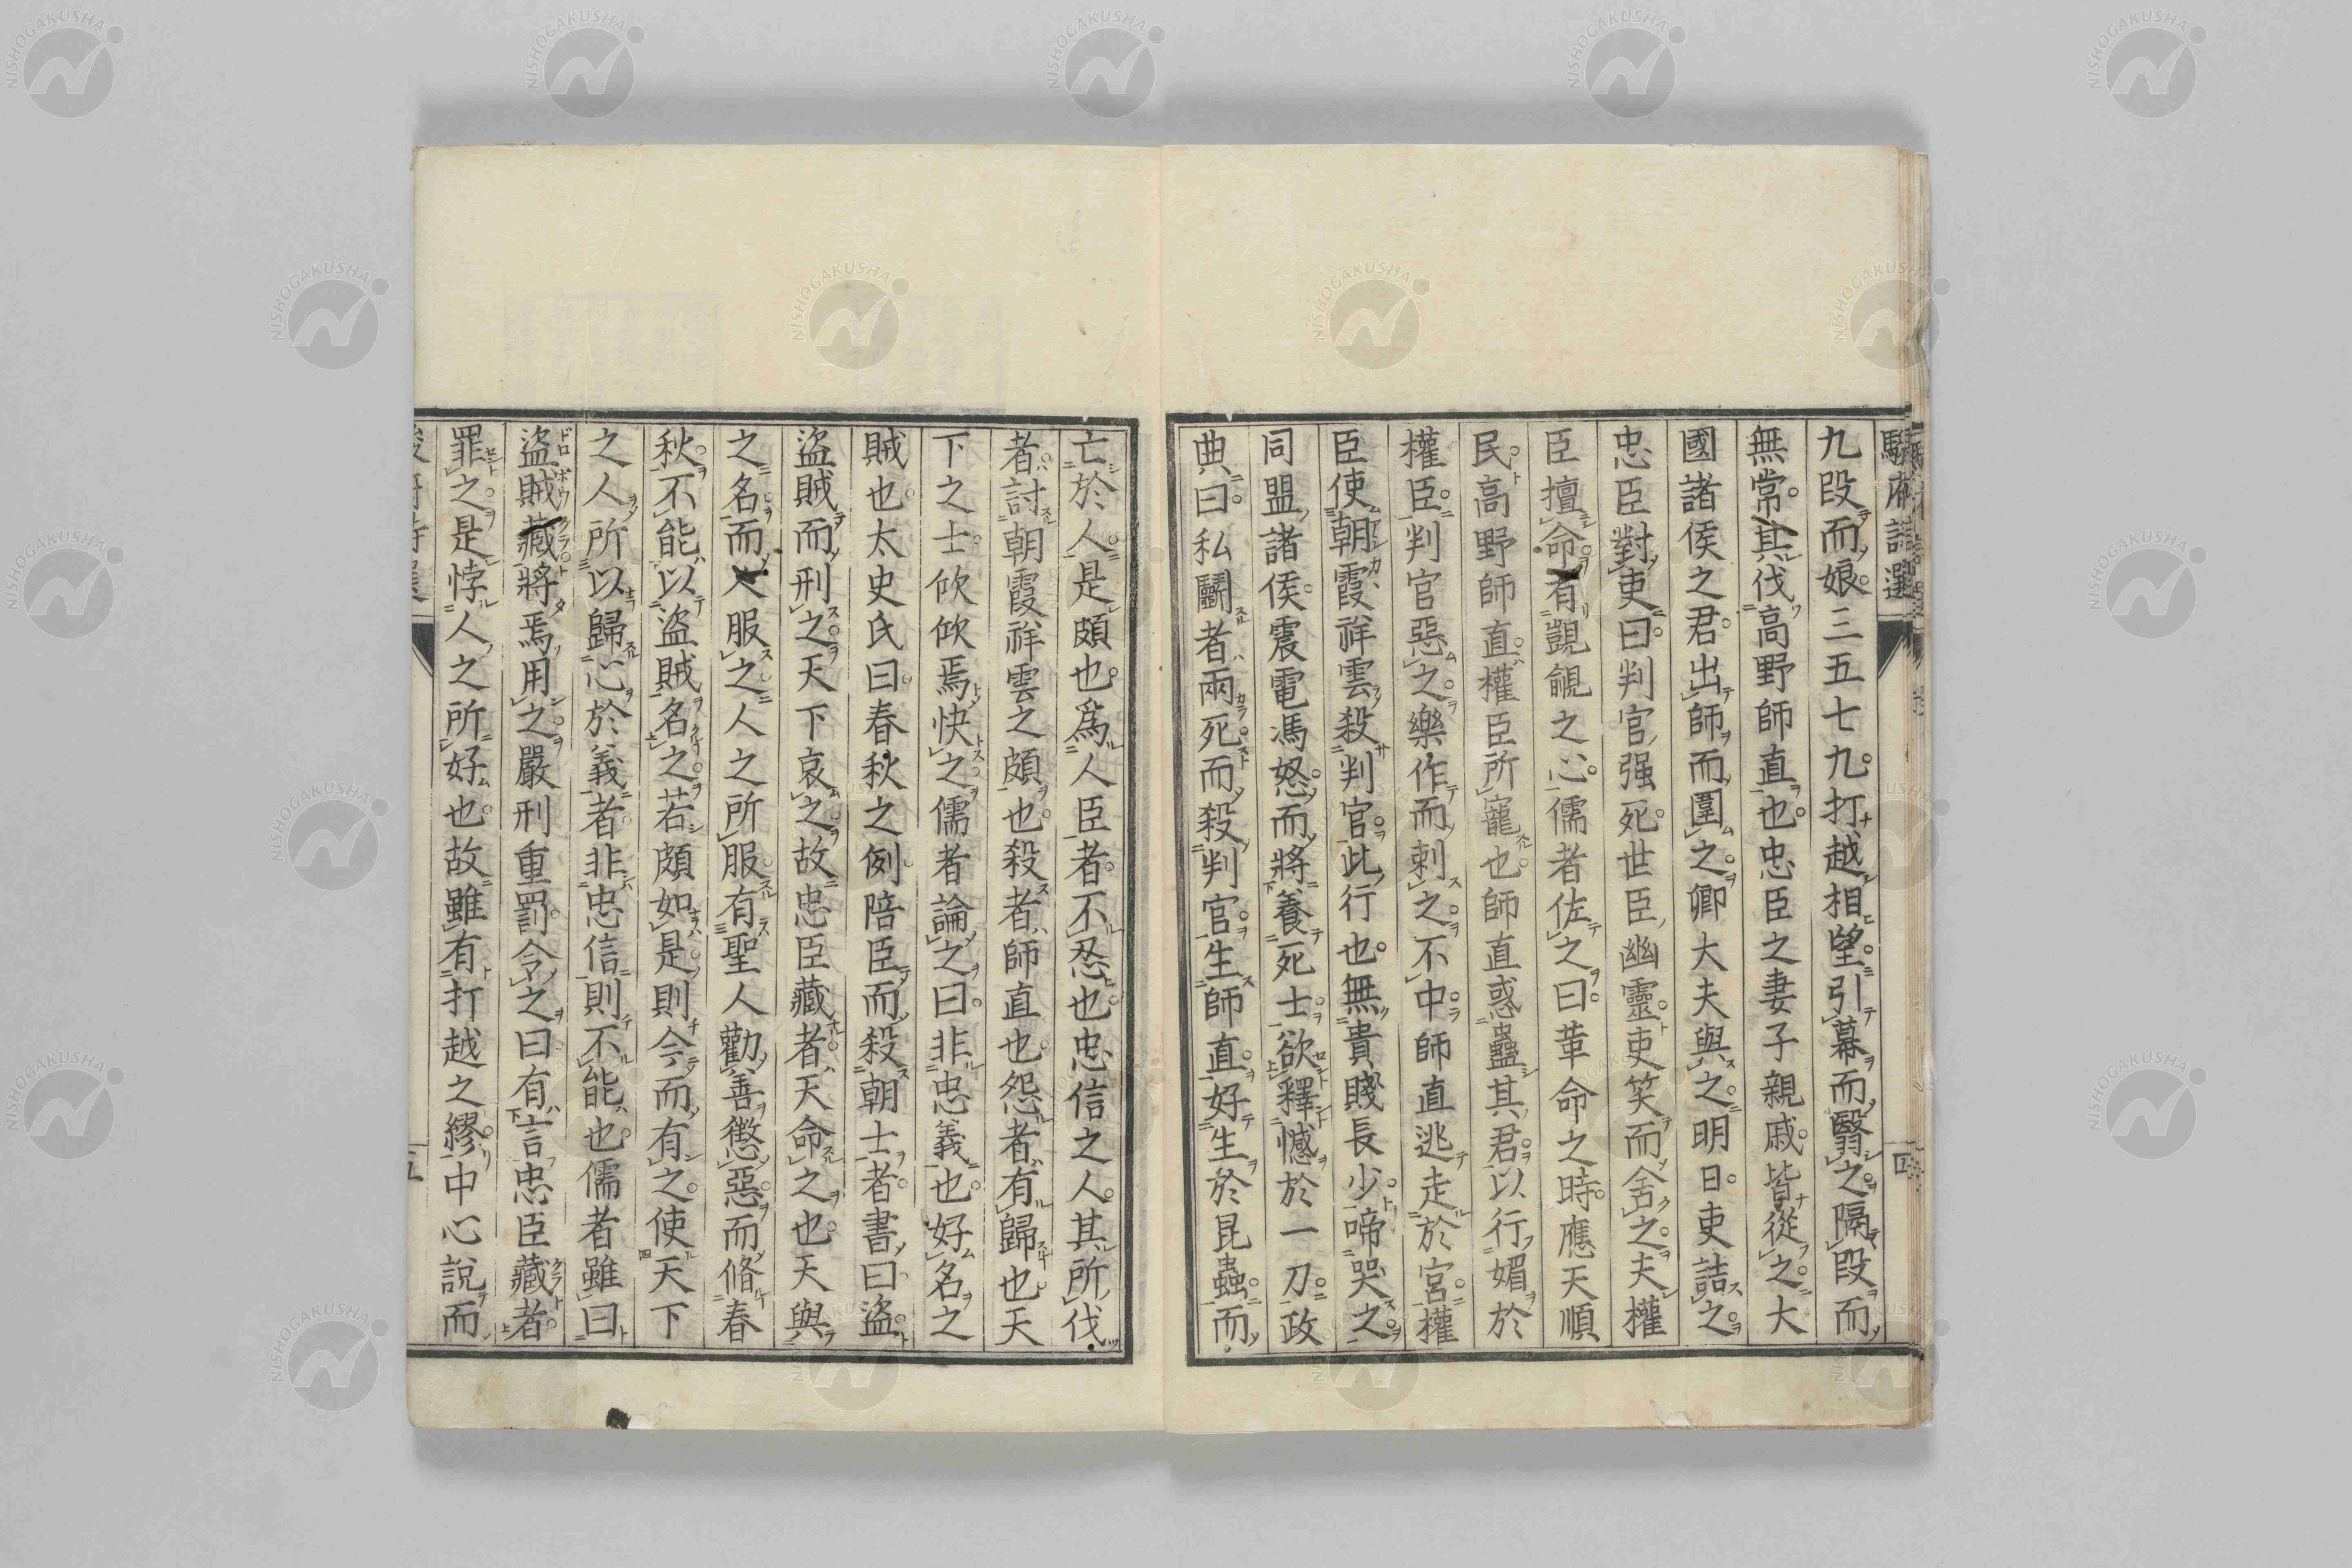 九段而娘三五七九打越相望引幕而翳之隔段而
無常其伐高野師直也忠臣之妻子親戚皆從之大
國諸侯之君出師而圍之卿大夫與之明日吏詰之
忠臣對吏曰判官强死世臣幽靈吏笑而舍之夫權
臣擅命有覬覦之心儒者佐之曰革命之時應天順
民高野師直權臣所寵也師直惑蠱其君以行媚於
權臣判官惡之樂作而刺之不中師直逃走於宮權
臣使朝霞祥雲殺判官此行也無貴賤長少啼哭之
同盟諸侯震電馮怒而將養死士欲釋憾於一刀政
典曰私鬭者兩死而殺判官生師直好生於昆蟲而
亡於人是頗也爲人臣者不忍也忠信之人其所伐
者討朝霞祥雲之頗也殺者師直也怨者有歸也天
下之士欣欣焉快之儒者論之曰非忠義也好名之
賊也太史氏曰春秋之例陪臣而殺朝士者書曰盜
盜賊而刑之天下哀之故忠臣藏者天命之也天與
之名而人服之人之所服有聖人勸善懲惡而脩春
秋不能以盜賊名之若頗如是則令而有之使天下
之人所以歸心於義者非忠信則不能也儒者雖曰
盜賊藏將焉用之嚴刑重罰令之曰有言忠臣藏者
罪之是悖人之所好也故雖有打越之繆中心說而
五